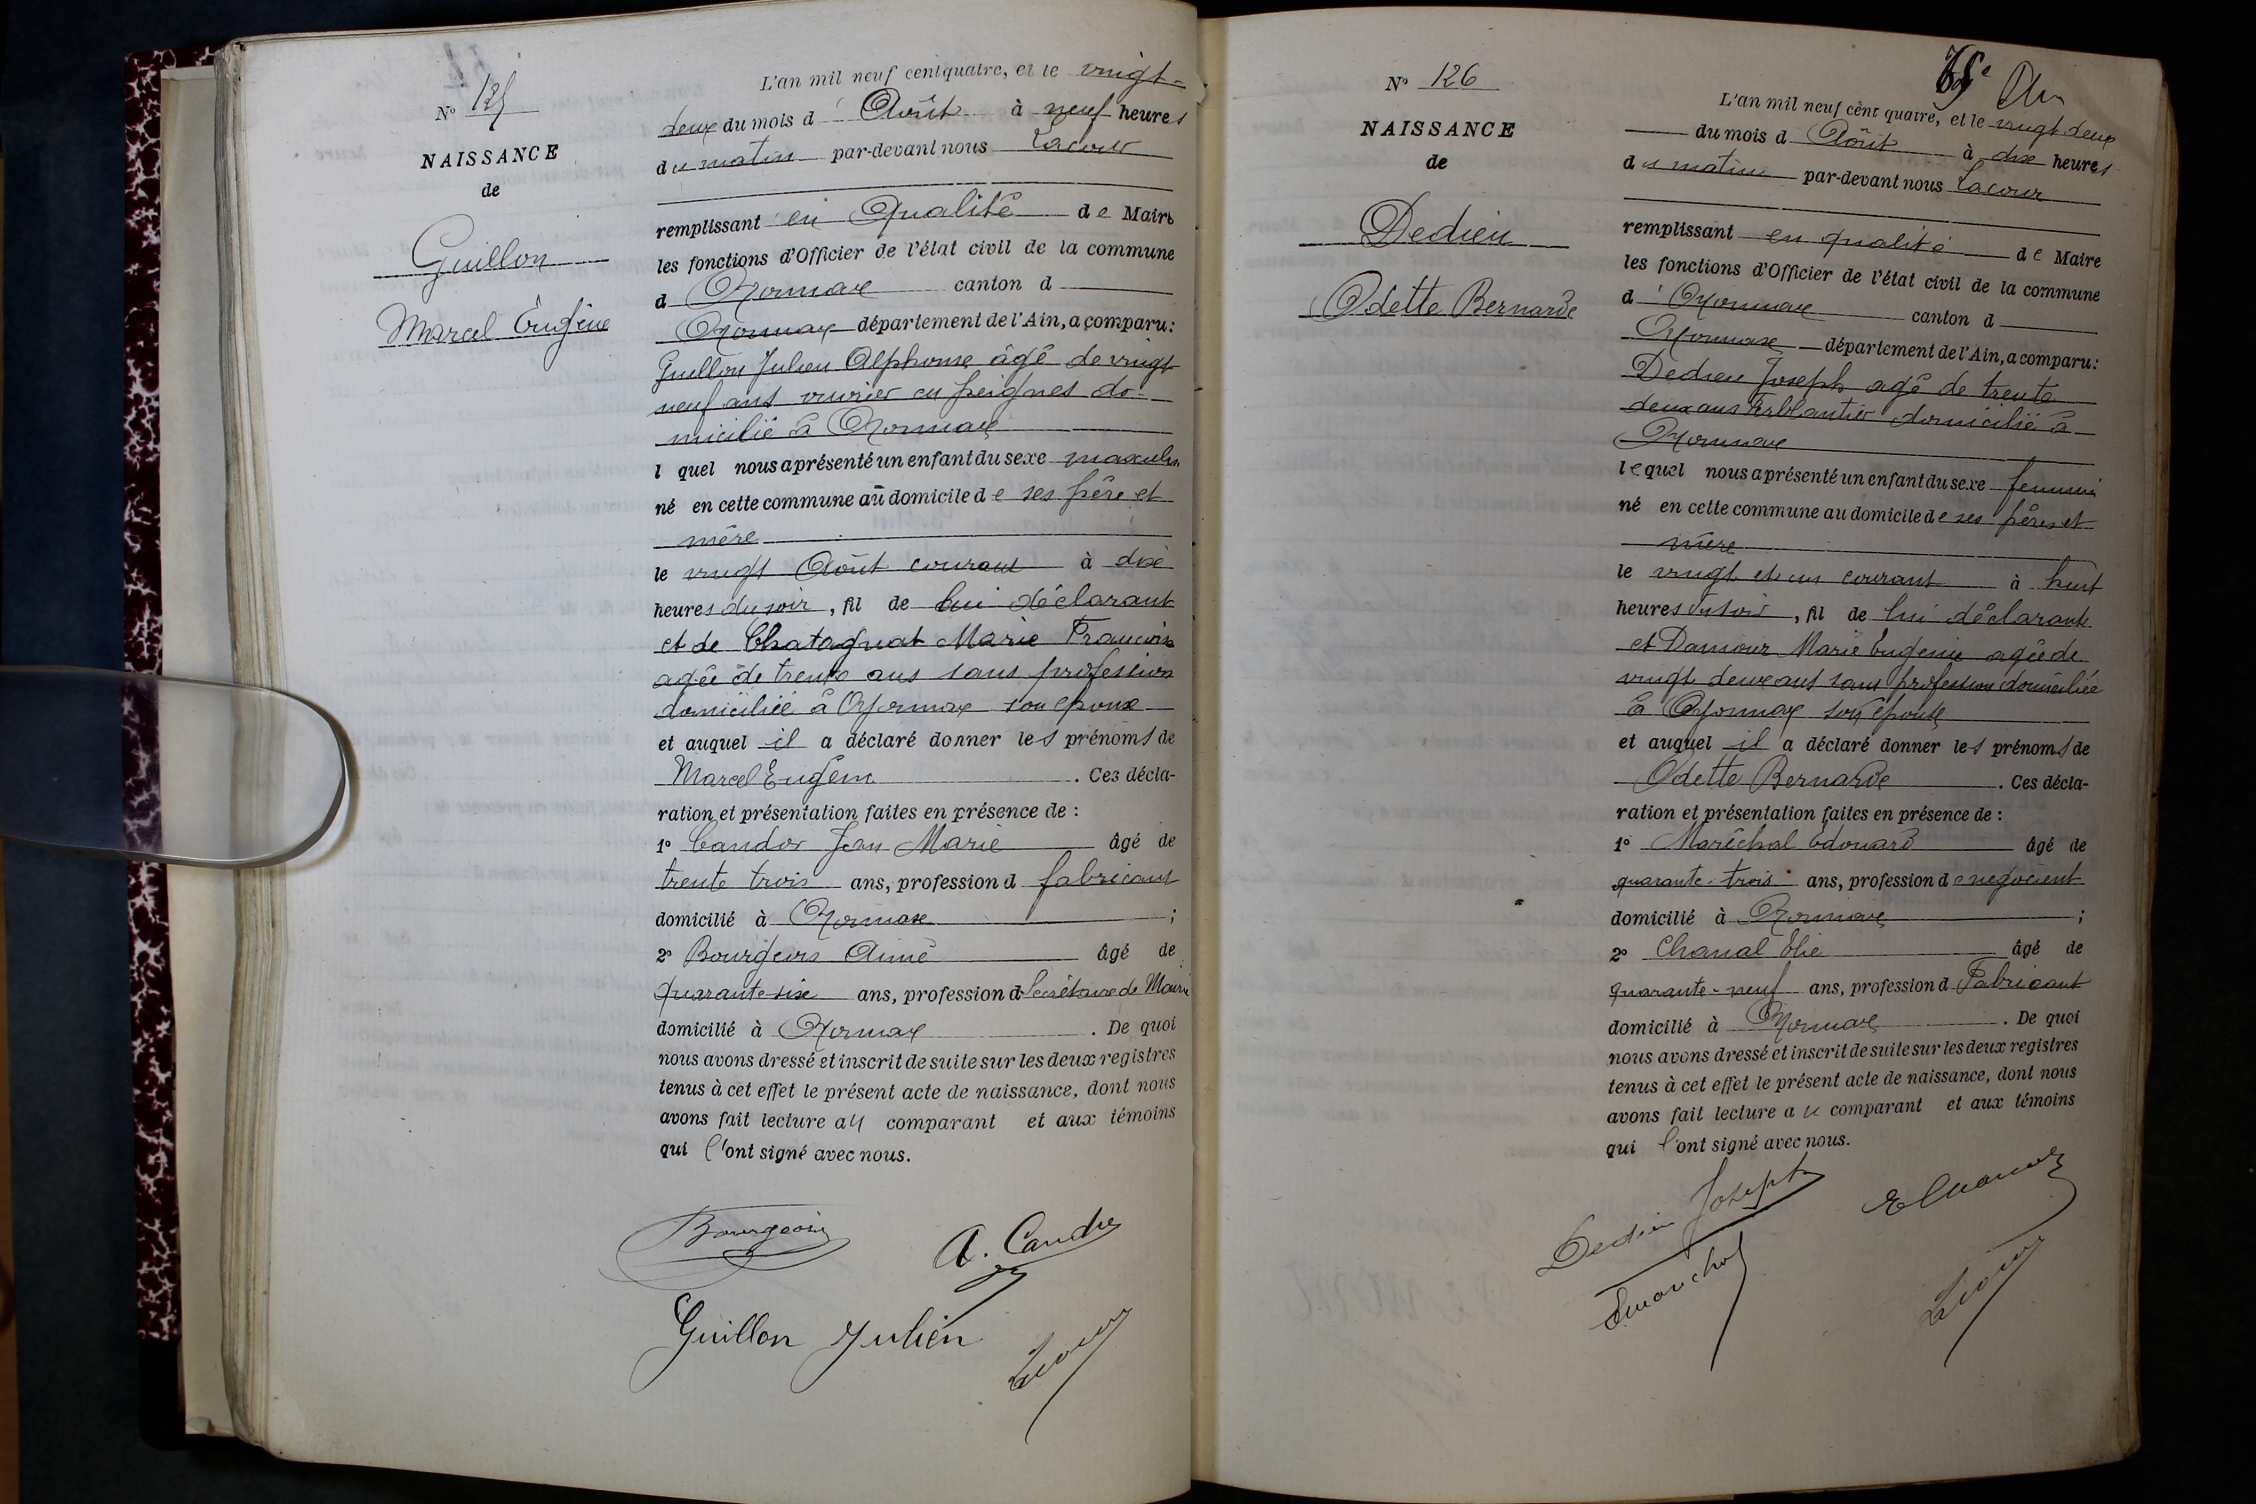 N° 125
NAISSANCE
de
Guillon
Marcel Eugène
L'an mil neuf cent quatre, et le vingt-
deux du mois d' Août à neuf heures
du matin par-devant nous Lacour
remplissant en Qualité de Maire
les fonctions d'Officier de l'état civil de la commune
d' Oyonnax canton d
Oyonnax département de l'Ain, a comparu:
Guillon Julien Alphonse âgé de vingt
neuf ans ouvrier en peignes do-
micilié à Oyonnax
l quel nous a présenté un enfant du sexe masculin
né en cette commune au domicile de ses père et
mère
le vingt Août courant à dix
heures du soir, fil de lui déclarant
et de Chatagnat Marie Francoise
agée de trente ans sans profession
domiciliée à Oyonnax son epouse
et auquel il a déclaré donner les prénoms de
Marcel Eugène. Ces décla-
ration et présentation faites en présence de :
1° Candor Jean Marie âgé de
trente trois ans, profession d fabricant
domicilié à Oyonnax ;
2° Bourgeois Aimé âgé de
quarante six ans, profession d Secrétaire de Mairie
domicilié à Oyonnax. De quoi
nous avons dressé et inscrit de suite sur les deux registres
tenus à cet effet le présent acte de naissance, dont nous
avons fait lecture au comparant et aux témoins
qui l'ont signé avec nous.
Bourgeois
A. Candor
Guillon Julien
Lacour
N° 126
NAISSANCE
de
Dedieu
Odette Bernarde
L'an mil neuf cent quatre, et le vingt deux
du mois d Août à dix heures
du matin par-devant nous Lacour
remplissant en qualité de Maire
les fonctions d'Officier de l'état civil de la commune
d' Oyonnax canton d
Oyonnax département de l'Ain, a comparu:
Dedieu Joseph agé de trente
deux ans ferblantier domicilié à
Oyonnax
lequel nous a présenté un enfant du sexe feminin
né en cette commune au domicile de ses pères et
mère
le vingt et un courant à huit
heures du soir, fil de lui déclarant
et Damour Marie Eugenie agée de
vingt deux ans sans profession domiciliée
à Oyonnax son épouse
et auquel il a déclaré donner les prénoms de
Odette Bernarde. Ces décla-
ration et présentation faites en présence de :
1° Maréchal Edouard âgé de
quarante-trois ans, profession de negocient
domicilié à Oyonnax ;
2° Chanal Elie âgé de
quarante-neuf ans, profession d Fabricant
domicilié à Oyonnax. De quoi
nous avons dressé et inscrit de suite sur les deux registres
tenus à cet effet le présent acte de naissance, dont nous
avons fait lecture au comparant et aux témoins
qui l'ont signé avec nous.
Dedieu Joseph
E Chanal
Lacour